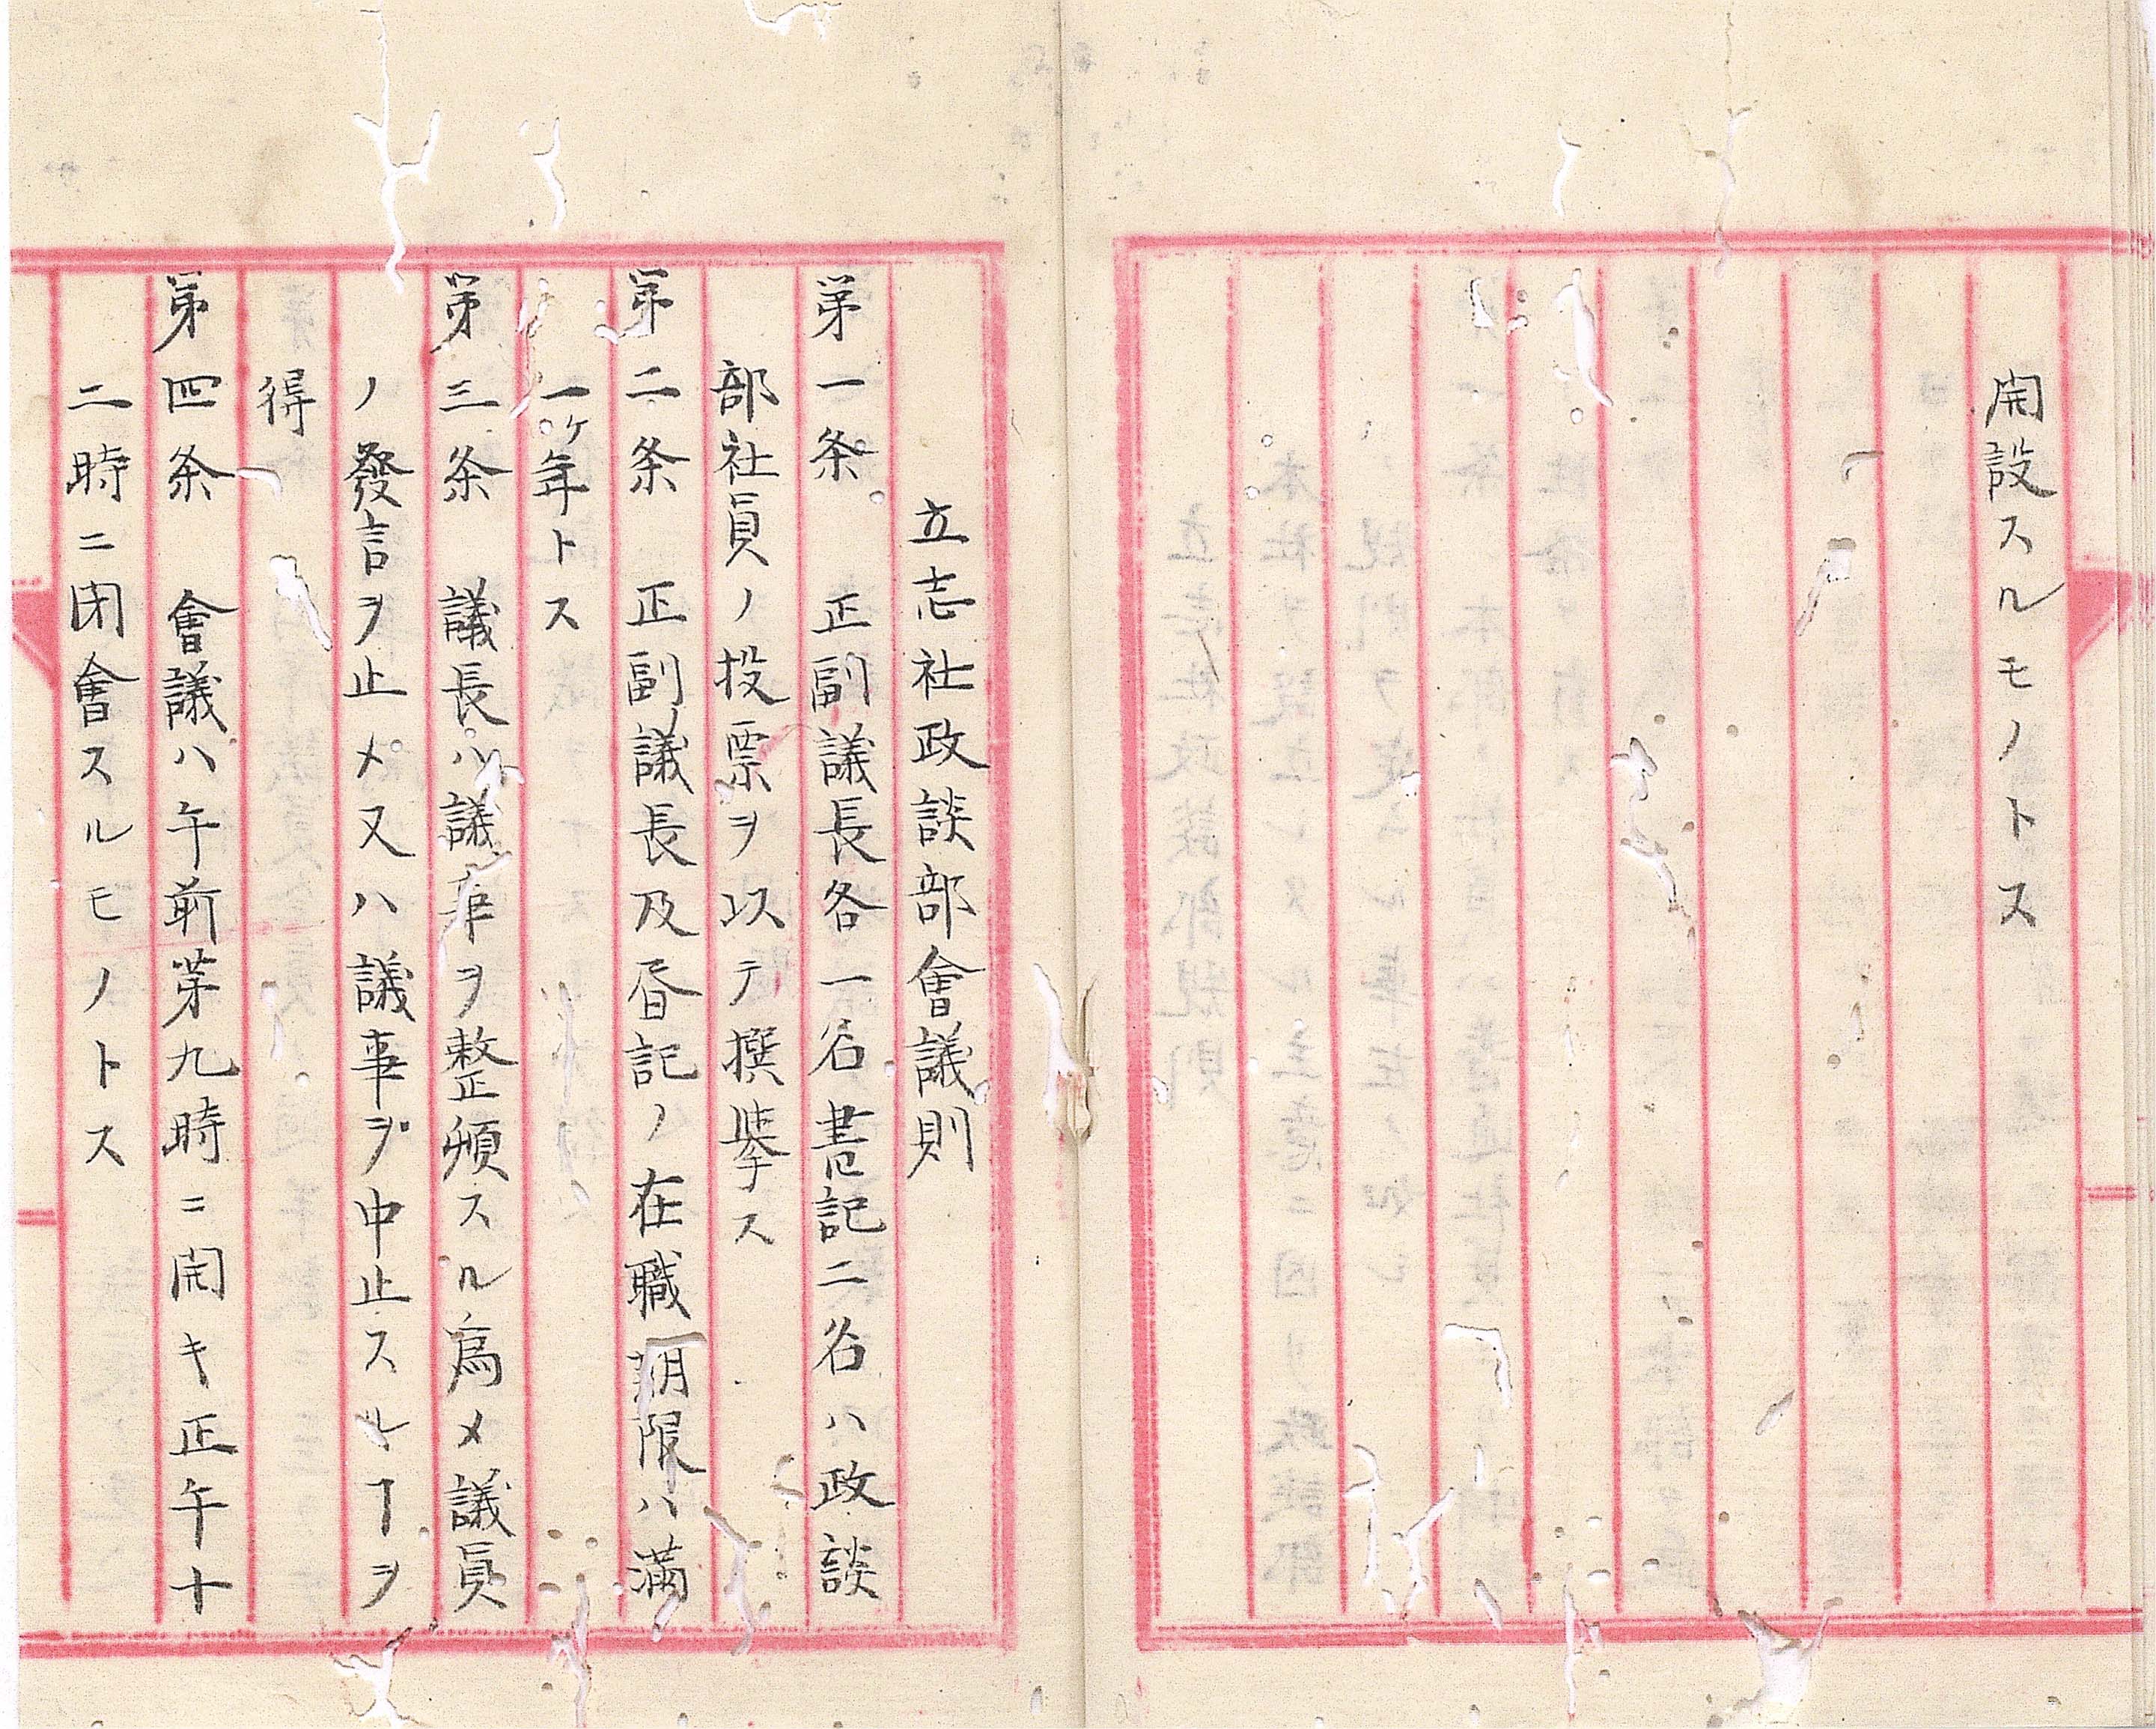 開設スルモノトス
立志社政談部會議則
第一条　正副議長各一名書記二名ハ政談
部社員ノ投票ヲ以テ撰挙ス
第二条　正副議長及書記ノ在職期限ハ満
一ヶ年トス
第三条　議長ハ議席ヲ整頓スル為メ議員
ノ發言ヲ止メ又ハ議事ヲ中止スルヿヲ
得
第四条　會議ハ午前第九時ニ開キ正午十
二時ニ閉會スルモノトス